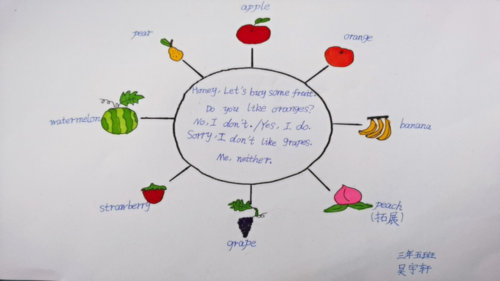 apple
pear
orange
Honey, Let's buy some fruit.
Do you like oranges?
No, I don't. / Yes, I do.
Sorry, I don't like grapes.
Me, neither.
watermelon
banana
strawberry
grape
peach
(拓展)
三年五班
吴宇轩